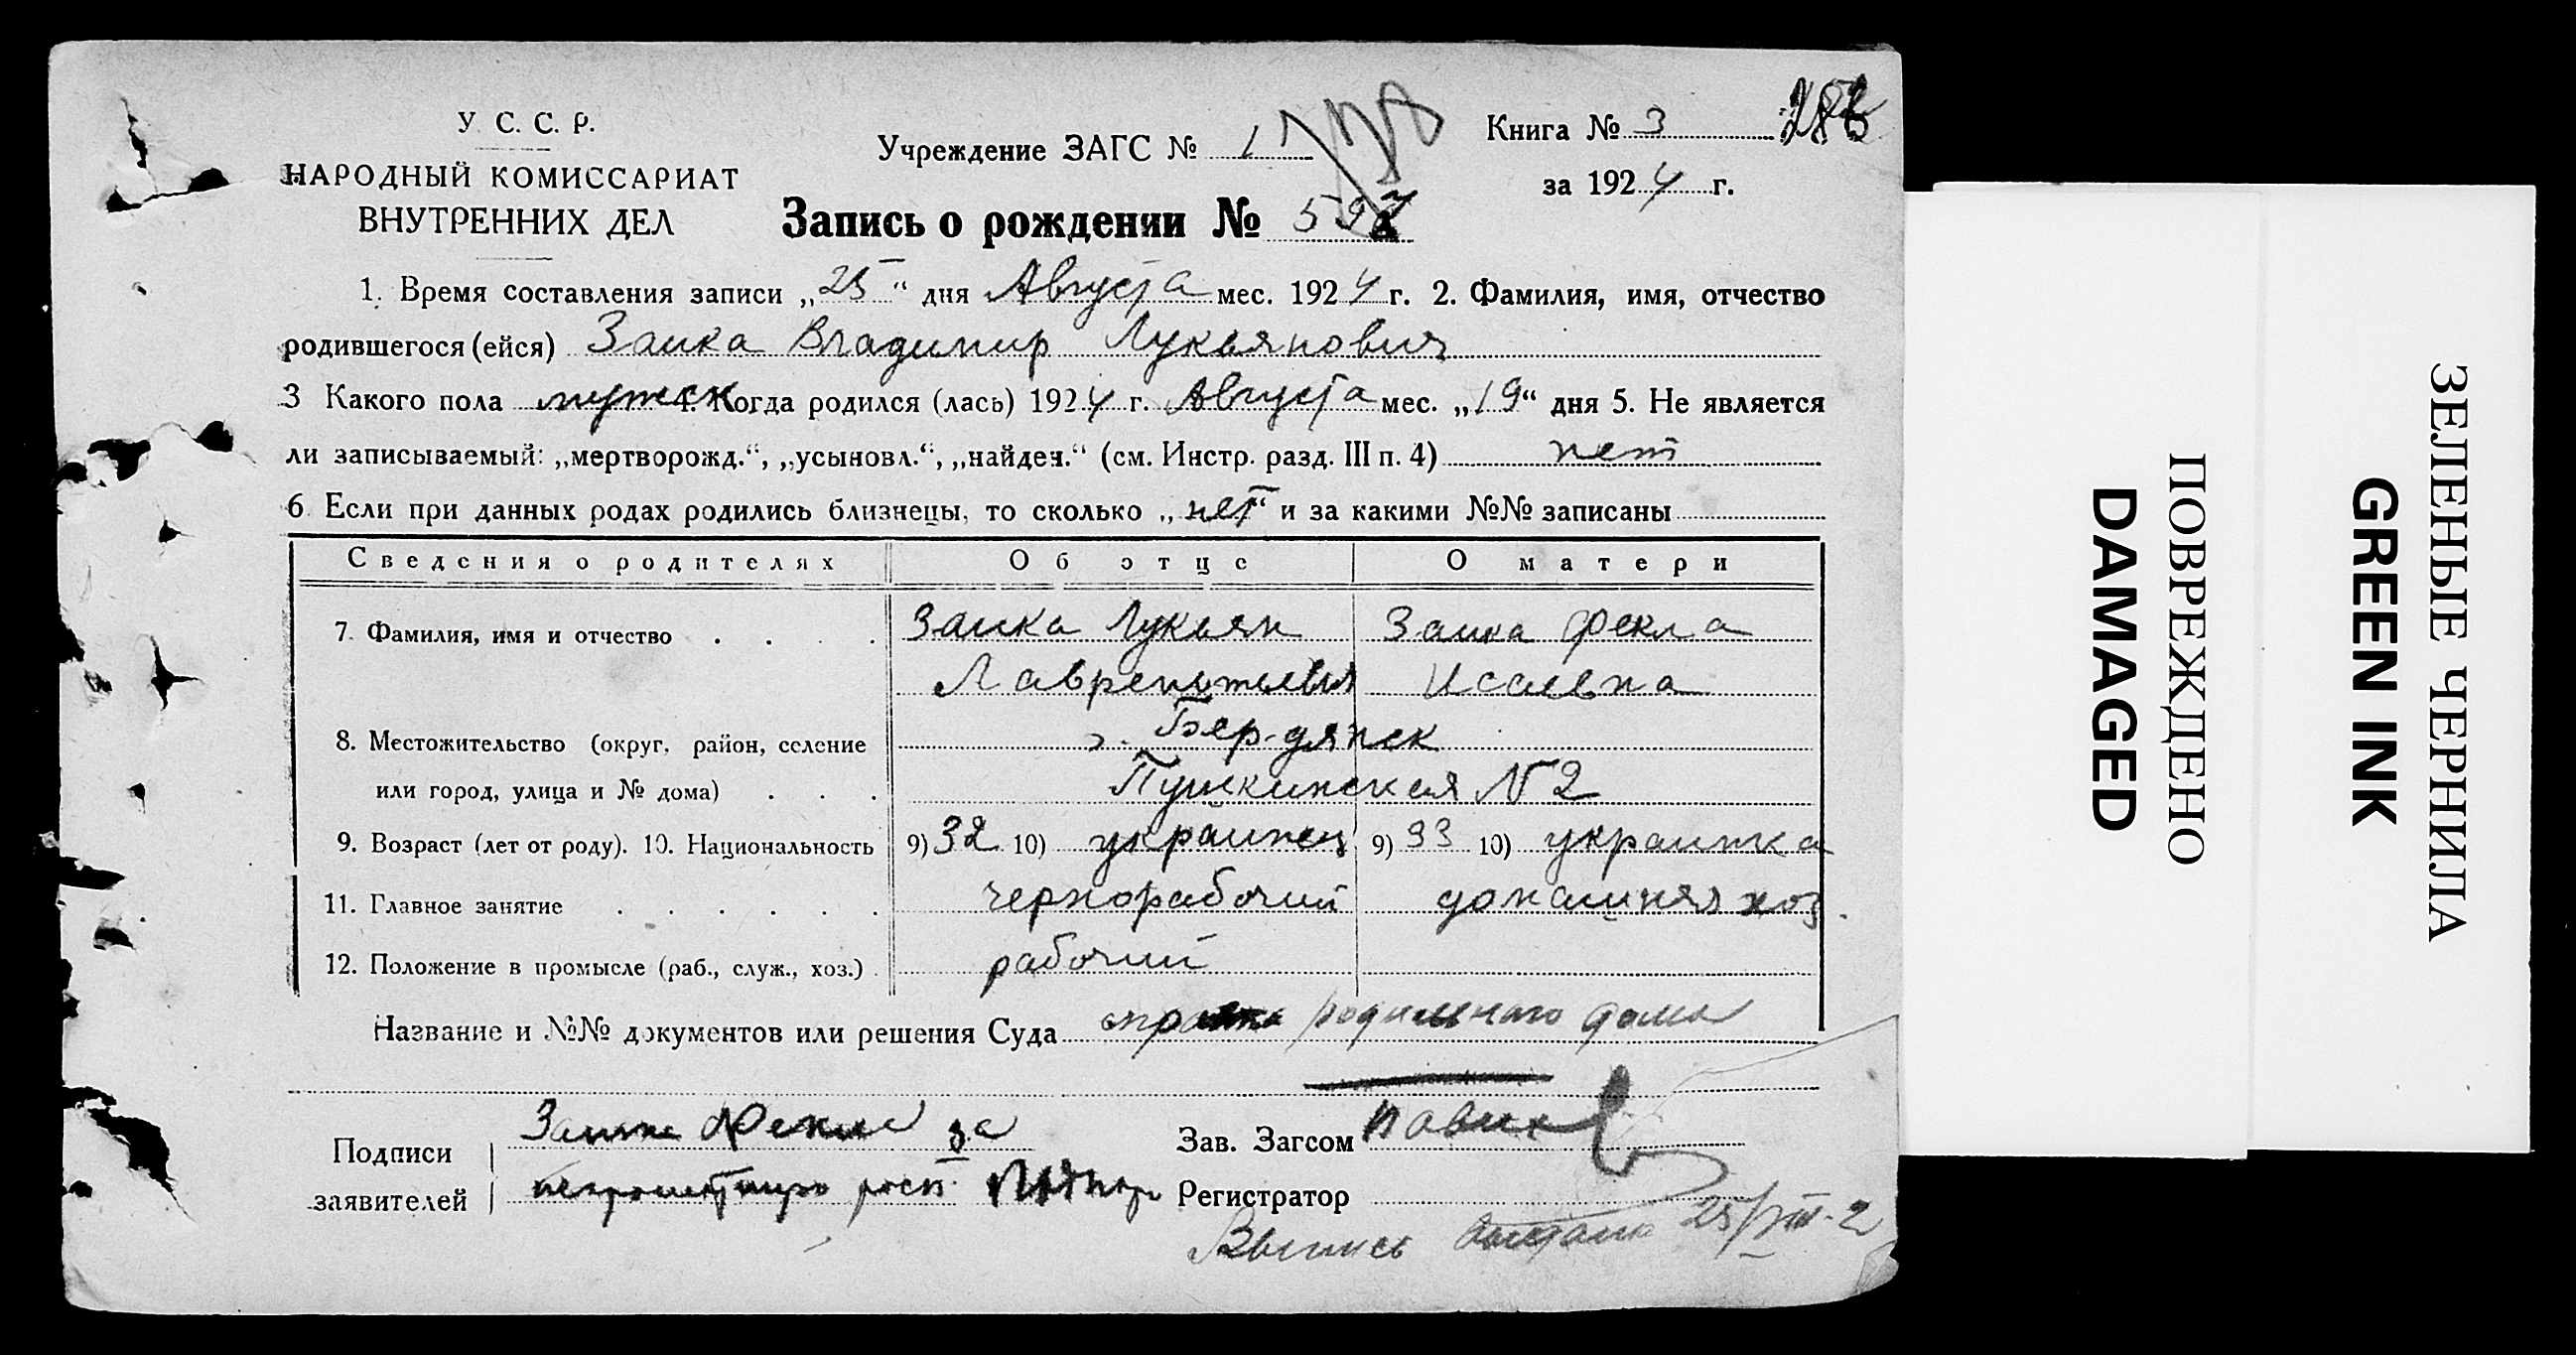 У. С. С. Р.
НАРОДНЫЙ КОМИССАРИАТ
ВНУТРЕННИХ ДЕЛ
Учреждение ЗАГС № 1
Книга № 3
за 1924 г.
Запись о рождении № 597
1. Время составления записи „25“ дня Августа мес. 1924 г. 2. Фамилия, имя, отчество
родившегося (ейся) Заика Владимир Лукьянович
3 Какого пола мужск 4. Когда родился (лась) 1924 г. Августа мес. „19“ дня 5. Не является
ли записываемый: „мертворожд.“, „усыновл.“, „найден.“ (см. Инстр. разд. III п. 4) нет
6 Если при данных родах родились близнецы, то сколько „нет“ и за какими №№ записаны
Сведения о родителях Об отце О матери
7. Фамилия, имя и отчество Заика Лукьян Заика Фекла
Лаврентьевич Исаевна
8. Местожительство (округ, район, селение г. Бердянск
или город, улица и № дома) Пушкинская N 2
9. Возраст (лет от роду). 10. Национальность 9) 32 10) украинец 9) 33 10) украинка
11. Главное занятие чернорабочий домашняя хоз.
12. Положение в промысле (раб., служ., хоз.) рабочий
Название и №№ документов или решения Суда справка родильного дома
Подписи Заика Фекла за
заявителей неграмотную росп.
Зав. Загсом
Регистратор
Выпись выдана 25/VIII-2
ПОВРЕЖДЕНО
DAMAGED
ЗЕЛЕНЫЕ ЧЕРНИЛА
GREEN INK